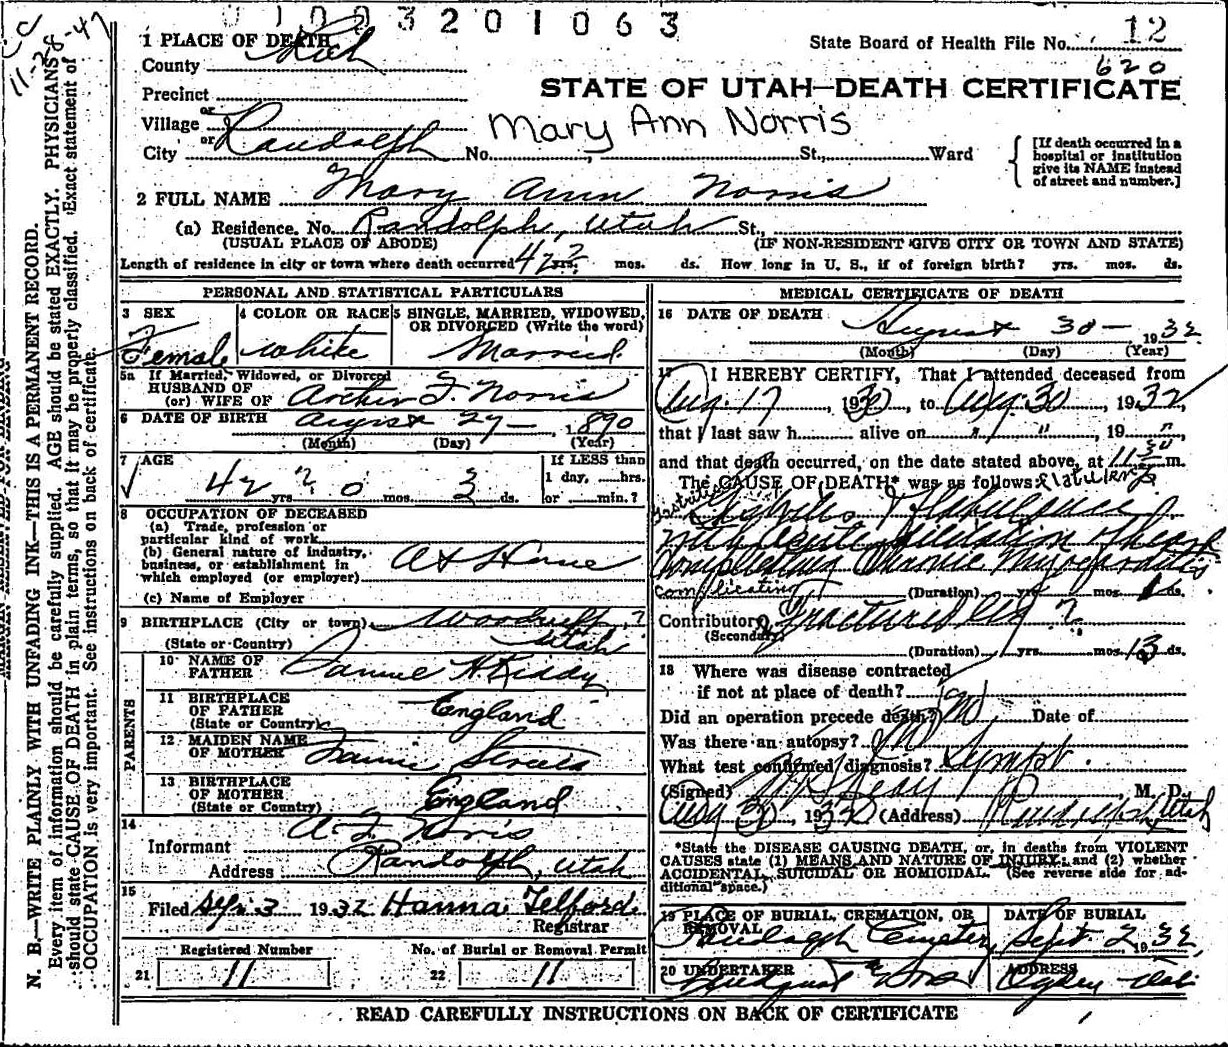 01003201063
cc
11-28-47
1 PLACE OF DEATH
County Rich
State Board of Health File No. 12
620
STATE OF UTAH—DEATH CERTIFICATE
Precinct
or
Village
or
City Randolph No. , St., Ward
Mary Ann Norris
[If death occurred in a
hospital or institution
give its NAME instead
of street and number.]
2 FULL NAME Mary Ann Norris
(a) Residence. No. Randolph, Utah St.,
(USUAL PLACE OF ABODE) (IF NON-RESIDENT GIVE CITY OR TOWN AND STATE)
Length of residence in city or town where death occurred 42 yrs. ? mos. ds. How long in U. S., if of foreign birth? yrs. mos. ds.
PERSONAL AND STATISTICAL PARTICULARS
3 SEX
Female
4 COLOR OR RACE
White
5 SINGLE, MARRIED, WIDOWED,
OR DIVORCED (Write the word)
Married
5a If Married, Widowed, or Divorced
HUSBAND OF
(or) WIFE OF Archer F. Norris
6 DATE OF BIRTH August 27 — 1890
(Month) (Day) (Year)
7 AGE
42 yrs ? 0 mos. 3 ds.
If LESS than
1 day, hrs.
or min.?
8 OCCUPATION OF DECEASED
(a) Trade, profession or
particular kind of work
(b) General nature of industry,
business, or establishment in
which employed (or employer) At Home
(c) Name of Employer
9 BIRTHPLACE (City or town) Woodruff, ?
(State or Country) Utah
PARENTS
10 NAME OF
FATHER
11 BIRTHPLACE
OF FATHER
(State or Country) England
12 MAIDEN NAME
OF MOTHER
13 BIRTHPLACE
OF MOTHER
(State or Country) England
14
Informant A. F. Norris
Address Randolph, Utah
15
Filed Sep. 3 1932 Hanna Telford
Registrar
Registered Number
21 11
No. of Burial or Removal Permit
22 11
MEDICAL CERTIFICATE OF DEATH
16 DATE OF DEATH August 30 — 1932
(Month) (Day) (Year)
17 I HEREBY CERTIFY, That I attended deceased from
Aug. 17, 1930, to Aug. 30, 1932,
that I last saw h alive on " ", 19 ",
and that death occurred, on the date stated above, at 11 30 m.
The CAUSE OF DEATH* was as follows: flatulency
gastritis
with acute dilitation of heart
complicating Chronic Myocarditis
complicating (Duration) yrs. mos. 1 ds.
Contributory Fractured leg ?
(Secondary)
(Duration) yrs. mos. 13 ds.
18 Where was disease contracted
if not at place of death?
Did an operation precede death? No Date of
Was there an autopsy? No
What test confirmed diagnosis? Sympt.
(Signed) , M. D.
Aug 30, 1932 (Address) Randolph, Utah
*State the DISEASE CAUSING DEATH, or, in deaths from VIOLENT
CAUSES state (1) MEANS AND NATURE OF INJURY; and (2) whether
ACCIDENTAL, SUICIDAL OR HOMICIDAL. (See reverse side for ad-
ditional space.)
19 PLACE OF BURIAL, CREMATION, OR
REMOVAL
Randolph Cemetery
DATE OF BURIAL
Sept. 2, 1932
20 UNDERTAKER
ADDRESS
Ogden Utah
READ CAREFULLY INSTRUCTIONS ON BACK OF CERTIFICATE
N. B.—WRITE PLAINLY WITH UNFADING INK—THIS IS A PERMANENT RECORD.
Every item of information should be carefully supplied. AGE should be stated EXACTLY. PHYSICIANS
should state CAUSE OF DEATH in plain terms, so that it may be properly classified. Exact statement of
OCCUPATION is very important. See instructions on back of certificate.